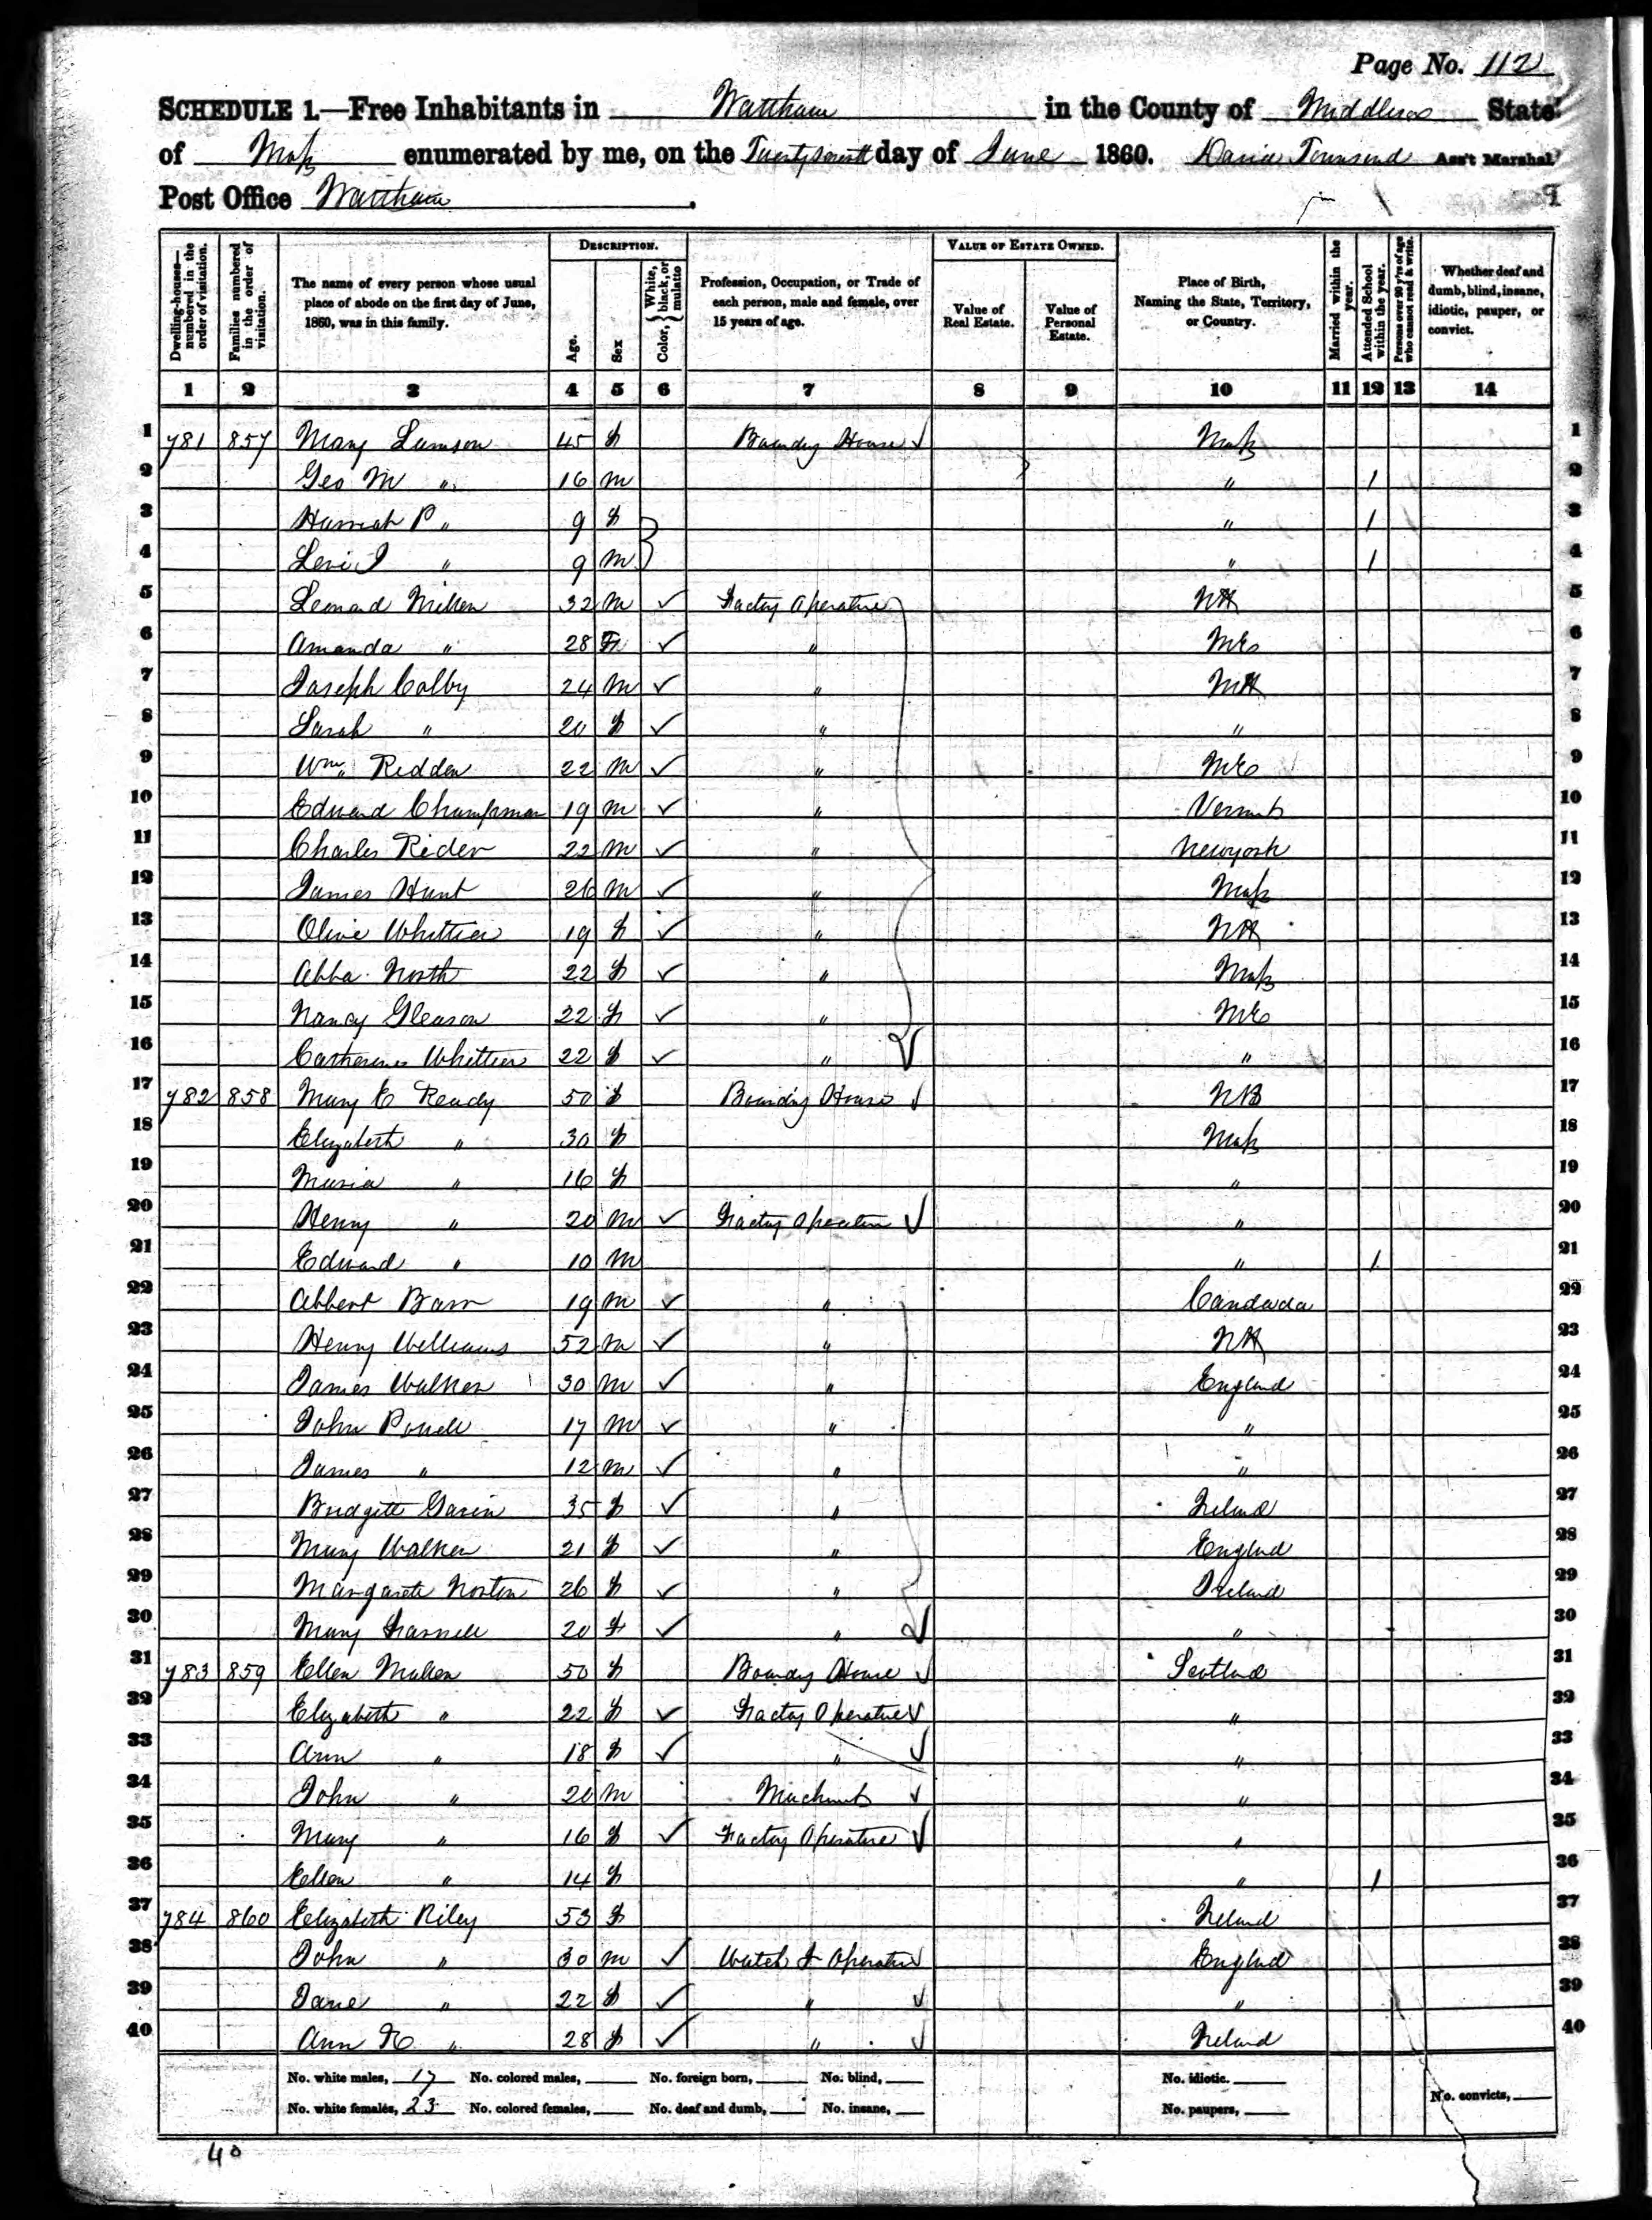 Page No. 112
SCHEDULE 1.—Free Inhabitants in Waltham in the County of Middlesex State
of Mass enumerated by me, on the Twenty seventh day of June 1860. David Townsend Ass't Marshal
Post Office Waltham.
9
DESCRIPTION. VALUE OF ESTATE OWNED.
Dwelling-houses—numbered in the order of visitation. Families numbered in the order of visitation. The name of every person whose usual place of abode on the first day of June, 1860, was in this family. Age. Sex Color, White, black, or mulatto Profession, Occupation, or Trade of each person, male and female, over 15 years of age. Value of Real Estate. Value of Personal Estate. Place of Birth, Naming the State, Territory, or Country. Married within the year. Attended School within the year. Persons over 20 y'rs of age who cannot read & write. Whether deaf and dumb, blind, insane, idiotic, pauper, or convict.
1 2 3 4 5 6 7 8 9 10 11 12 13 14
1 781 857 Mary Lamson 45 f Boarding House Mass 1
2 Geo M " 16 m " 1 2
3 Hannah P " 9 f " 1 3
4 Levi J " 9 m " 1 4
5 Leonard Milken 32 m ✓ Factory Operative NH 5
6 Amanda " 28 F ✓ " Me 6
7 Joseph Colby 24 m ✓ " NH 7
8 Sarah " 20 f ✓ " " 8
9 Wm Redden 22 m ✓ " Me 9
10 Edward Champman 19 m ✓ " Vermt 10
11 Charles Rider 22 m ✓ " Newyork 11
12 James Hunt 26 m ✓ " Mass 12
13 Olive Whittier 19 f ✓ " NH 13
14 Abba North 22 f ✓ " Mass 14
15 Nancy Gleason 22 f ✓ " Me 15
16 Catherine Whittier 22 f ✓ " " 16
17 782 858 Mary E Ready 50 f Boarding House NB 17
18 Elizabeth " 30 f Mass 18
19 Maria " 16 f " 19
20 Henry " 20 m ✓ Factory Operative " 20
21 Edward " 10 m " 1 21
22 Abbert Barr 19 m ✓ " Candada 22
23 Henry Williams 52 m ✓ " NH 23
24 James Walker 30 m ✓ " England 24
25 John Powell 17 m ✓ " " 25
26 James " 12 m ✓ " " 26
27 Bridgett Gavin 35 f ✓ " Ireland 27
28 Mary Walker 21 f ✓ " England 28
29 Margarete Norton 26 f ✓ " Ireland 29
30 Mary 20 f ✓ " " 30
31 783 859 Ellen Mulken 50 f Boarding House Scotland 31
32 Elizabeth " 22 f ✓ Factory Operative " 32
33 Ann " 18 f ✓ " " 33
34 John " 20 m Machinist " 34
35 Mary " 16 f ✓ Factory Operative " 35
36 Ellen " 14 f " 1 36
37 784 860 Elizabeth Riley 53 f Ireland 37
38 John " 30 m ✓ Watch F Operative England 38
39 Jane " 22 f ✓ " " 39
40 Ann " 28 f ✓ " Ireland 40
No. white males, 17 No. colored males, No. foreign born, No. blind, No. idiotic.
No. white females, 23 No. colored females, No. deaf and dumb, No. insane, No. paupers, No. convicts,
40